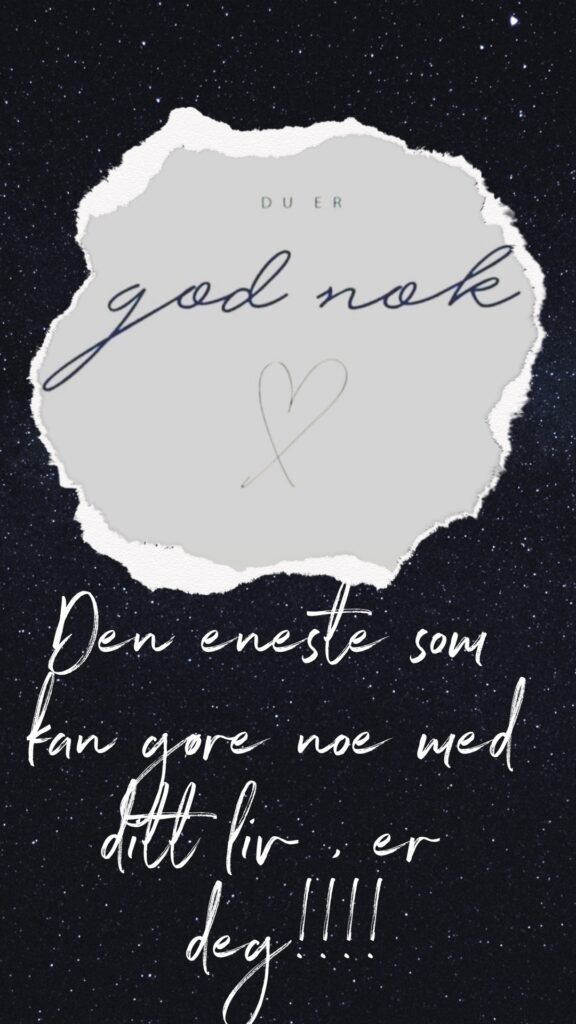 DU ER
god nok
Den eneste som
kan gøre noe med
ditt liv , er
deg!!!!